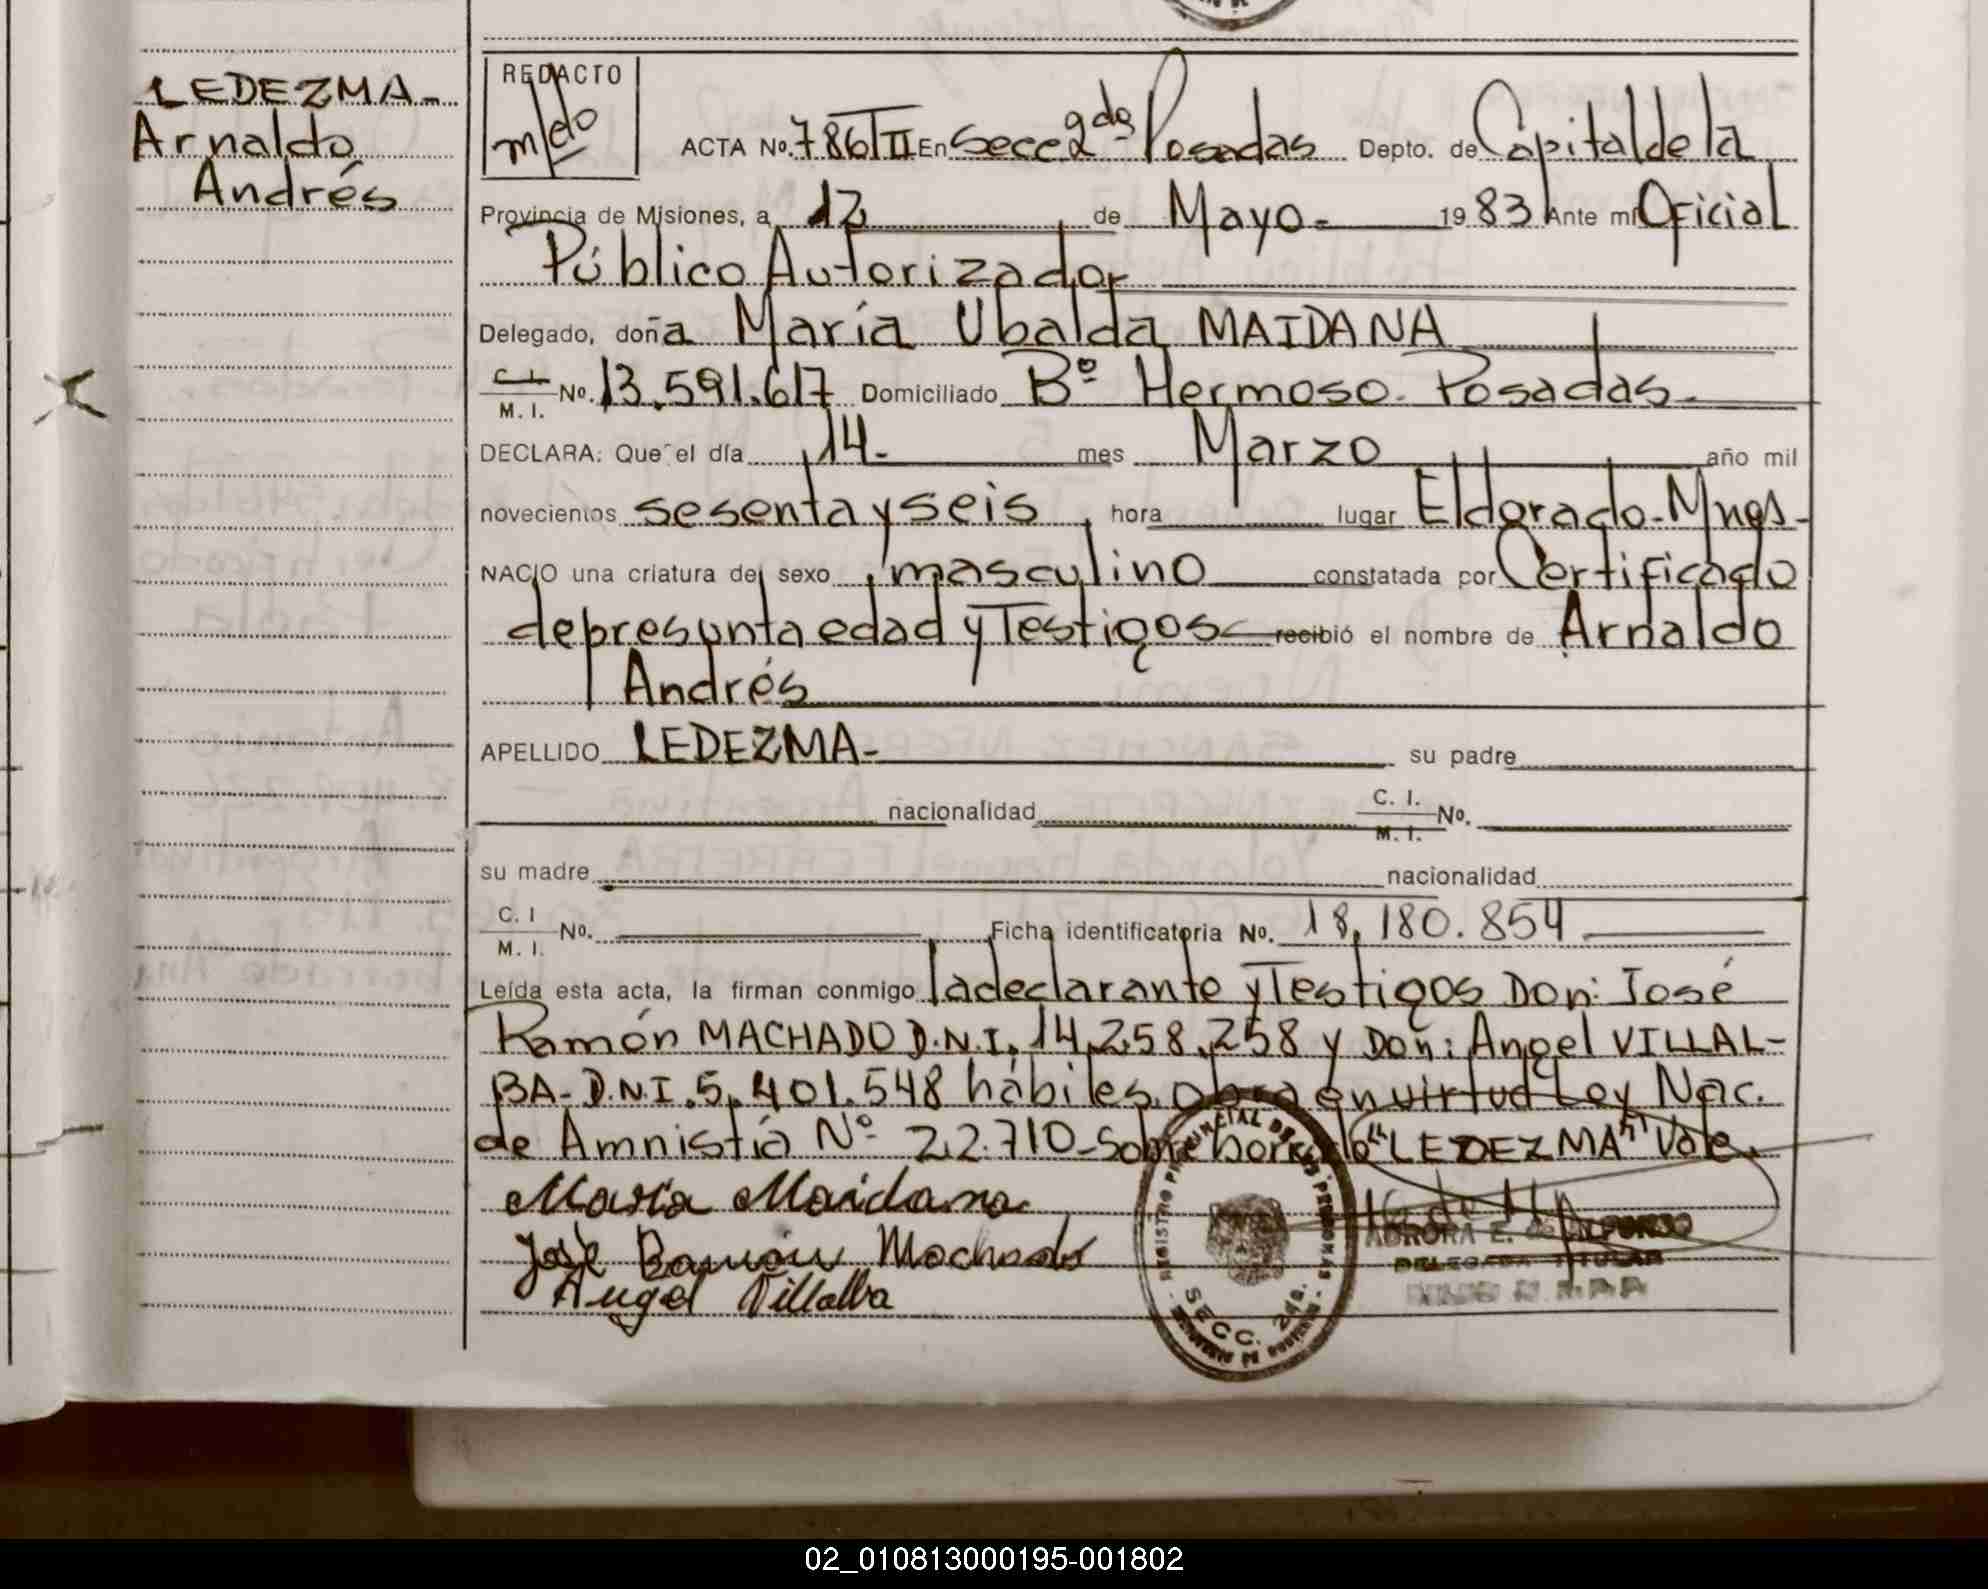 LEDEZMA-
Arnaldo
Andrés
REDACTO
ACTA No. 786/TII En Secc 2da Posadas Depto. de Capital de la
Provincia de Misiones, a 12 de Mayo- 1983 Ante mí Oficial
Público Autorizador
Delegado, doña María Ubalda MAIDANA
C. I.
M. I. No. 13.591.617 Domiciliado Bº Hermoso. Posadas-
DECLARA: Que el día 14- mes Marzo año mil
novecientos sesenta y seis, hora lugar Eldorado-Mnes-
NACIO una criatura de sexo masculino constatada por Certificado
de presunta edad y Testigos recibió el nombre de Arnaldo
Andrés
APELLIDO LEDEZMA- su padre
nacionalidad C. I.
M. I. No.
su madre nacionalidad
C. I
M. I. No. Ficha identificatoria No. 18.180.854
Leída esta acta, la firman conmigo la declarante y Testigos Don: José
Ramón MACHADO D.N.I. 14.258.258 y Don: Angel VILLAL-
BA- D.N.I. 5.401.548 hábiles. obra en virtud Ley Nac.
de Amnistía Nº 22.710- Sobreborrado "LEDEZMA" Vale.
María Maidana
José Ramón Machado
Angel Villalba
REGISTRO PROVINCIAL DE LAS PERSONAS
SECC. 2da.
AURORA E. de ALFONSO
DELEGADA TITULAR
02_010813000195-001802